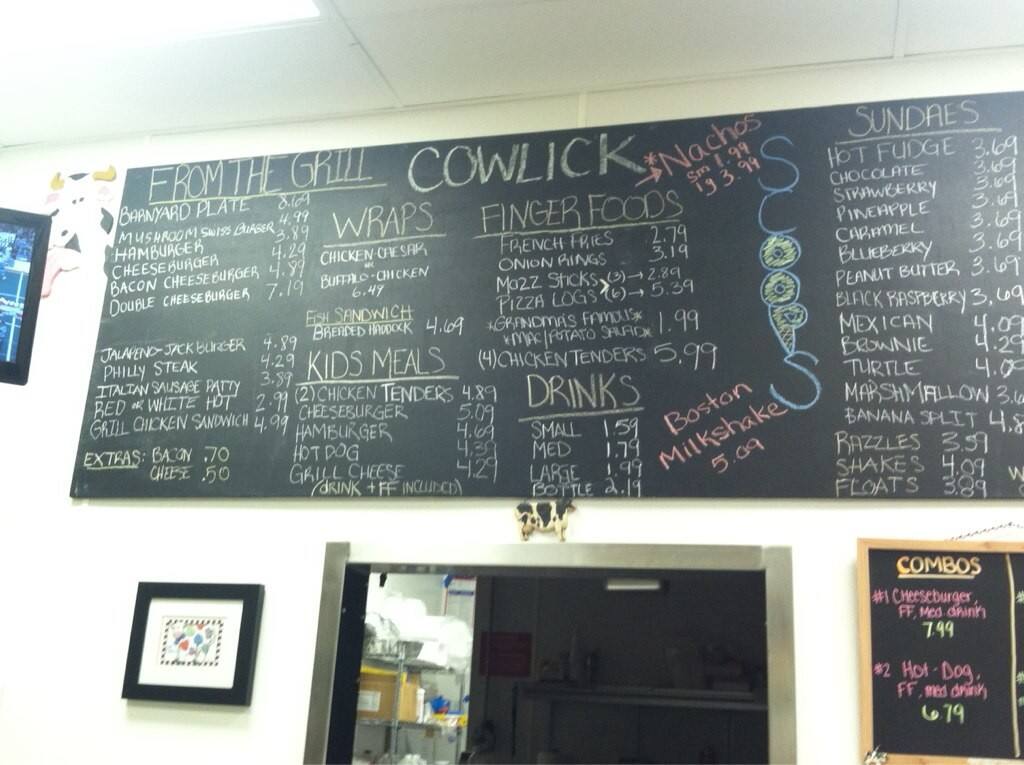 COWLICK
FROM THE GRILL
BARNYARD PLATE 8.69
MUSHROOM SWISS BURGER 4.99
HAMBURGER 3.89
CHEESEBURGER 4.29
BACON CHEESEBURGER 4.89
DOUBLE CHEESEBURGER 7.19
JALAPENO-JACK BURGER 4.89
PHILLY STEAK 4.29
ITALIAN SAUSAGE PATTY 3.89
RED OR WHITE HOT 2.99
GRILL CHICKEN SANDWICH 4.99
EXTRAS: BACON .70
CHEESE .50
WRAPS
CHICKEN CAESAR
OR
BUFFALO-CHICKEN
6.49
FISH SANDWICH
BREADED HADDOCK 4.69
KIDS MEALS
(2) CHICKEN TENDERS 4.89
CHEESEBURGER 5.09
HAMBURGER 4.69
HOT DOG 4.39
GRILL CHEESE 4.29
(DRINK + FF INCLUDED)
FINGER FOODS
FRENCH FRIES 2.79
ONION RINGS 3.19
MOZZ STICKS (3) → 2.89
PIZZA LOGS (6) → 5.39
*GRANDMA'S FAMOUS*
*MAC/POTATO SALAD* 1.99
(4) CHICKEN TENDERS 5.99
DRINKS
SMALL 1.59
MED 1.79
LARGE 1.99
BOTTLE 2.19
*Nachos
sm 1.99
lg 3.99
Boston
Milkshake
5.09
SCOOPS
SUNDAES
HOT FUDGE 3.69
CHOCOLATE 3.69
STRAWBERRY 3.69
PINEAPPLE 3.69
CARAMEL 3.69
BLUEBERRY 3.69
PEANUT BUTTER 3.69
BLACK RASPBERRY 3.69
MEXICAN 4.09
BROWNIE 4.29
TURTLE 4.09
MARSHMALLOW 3.6
BANANA SPLIT 4.8
RAZZLES 3.59
SHAKES 4.09
FLOATS 3.89
COMBOS
#1 Cheeseburger,
FF, med drink
7.99
#2 Hot-Dog,
FF, med drink
6.79